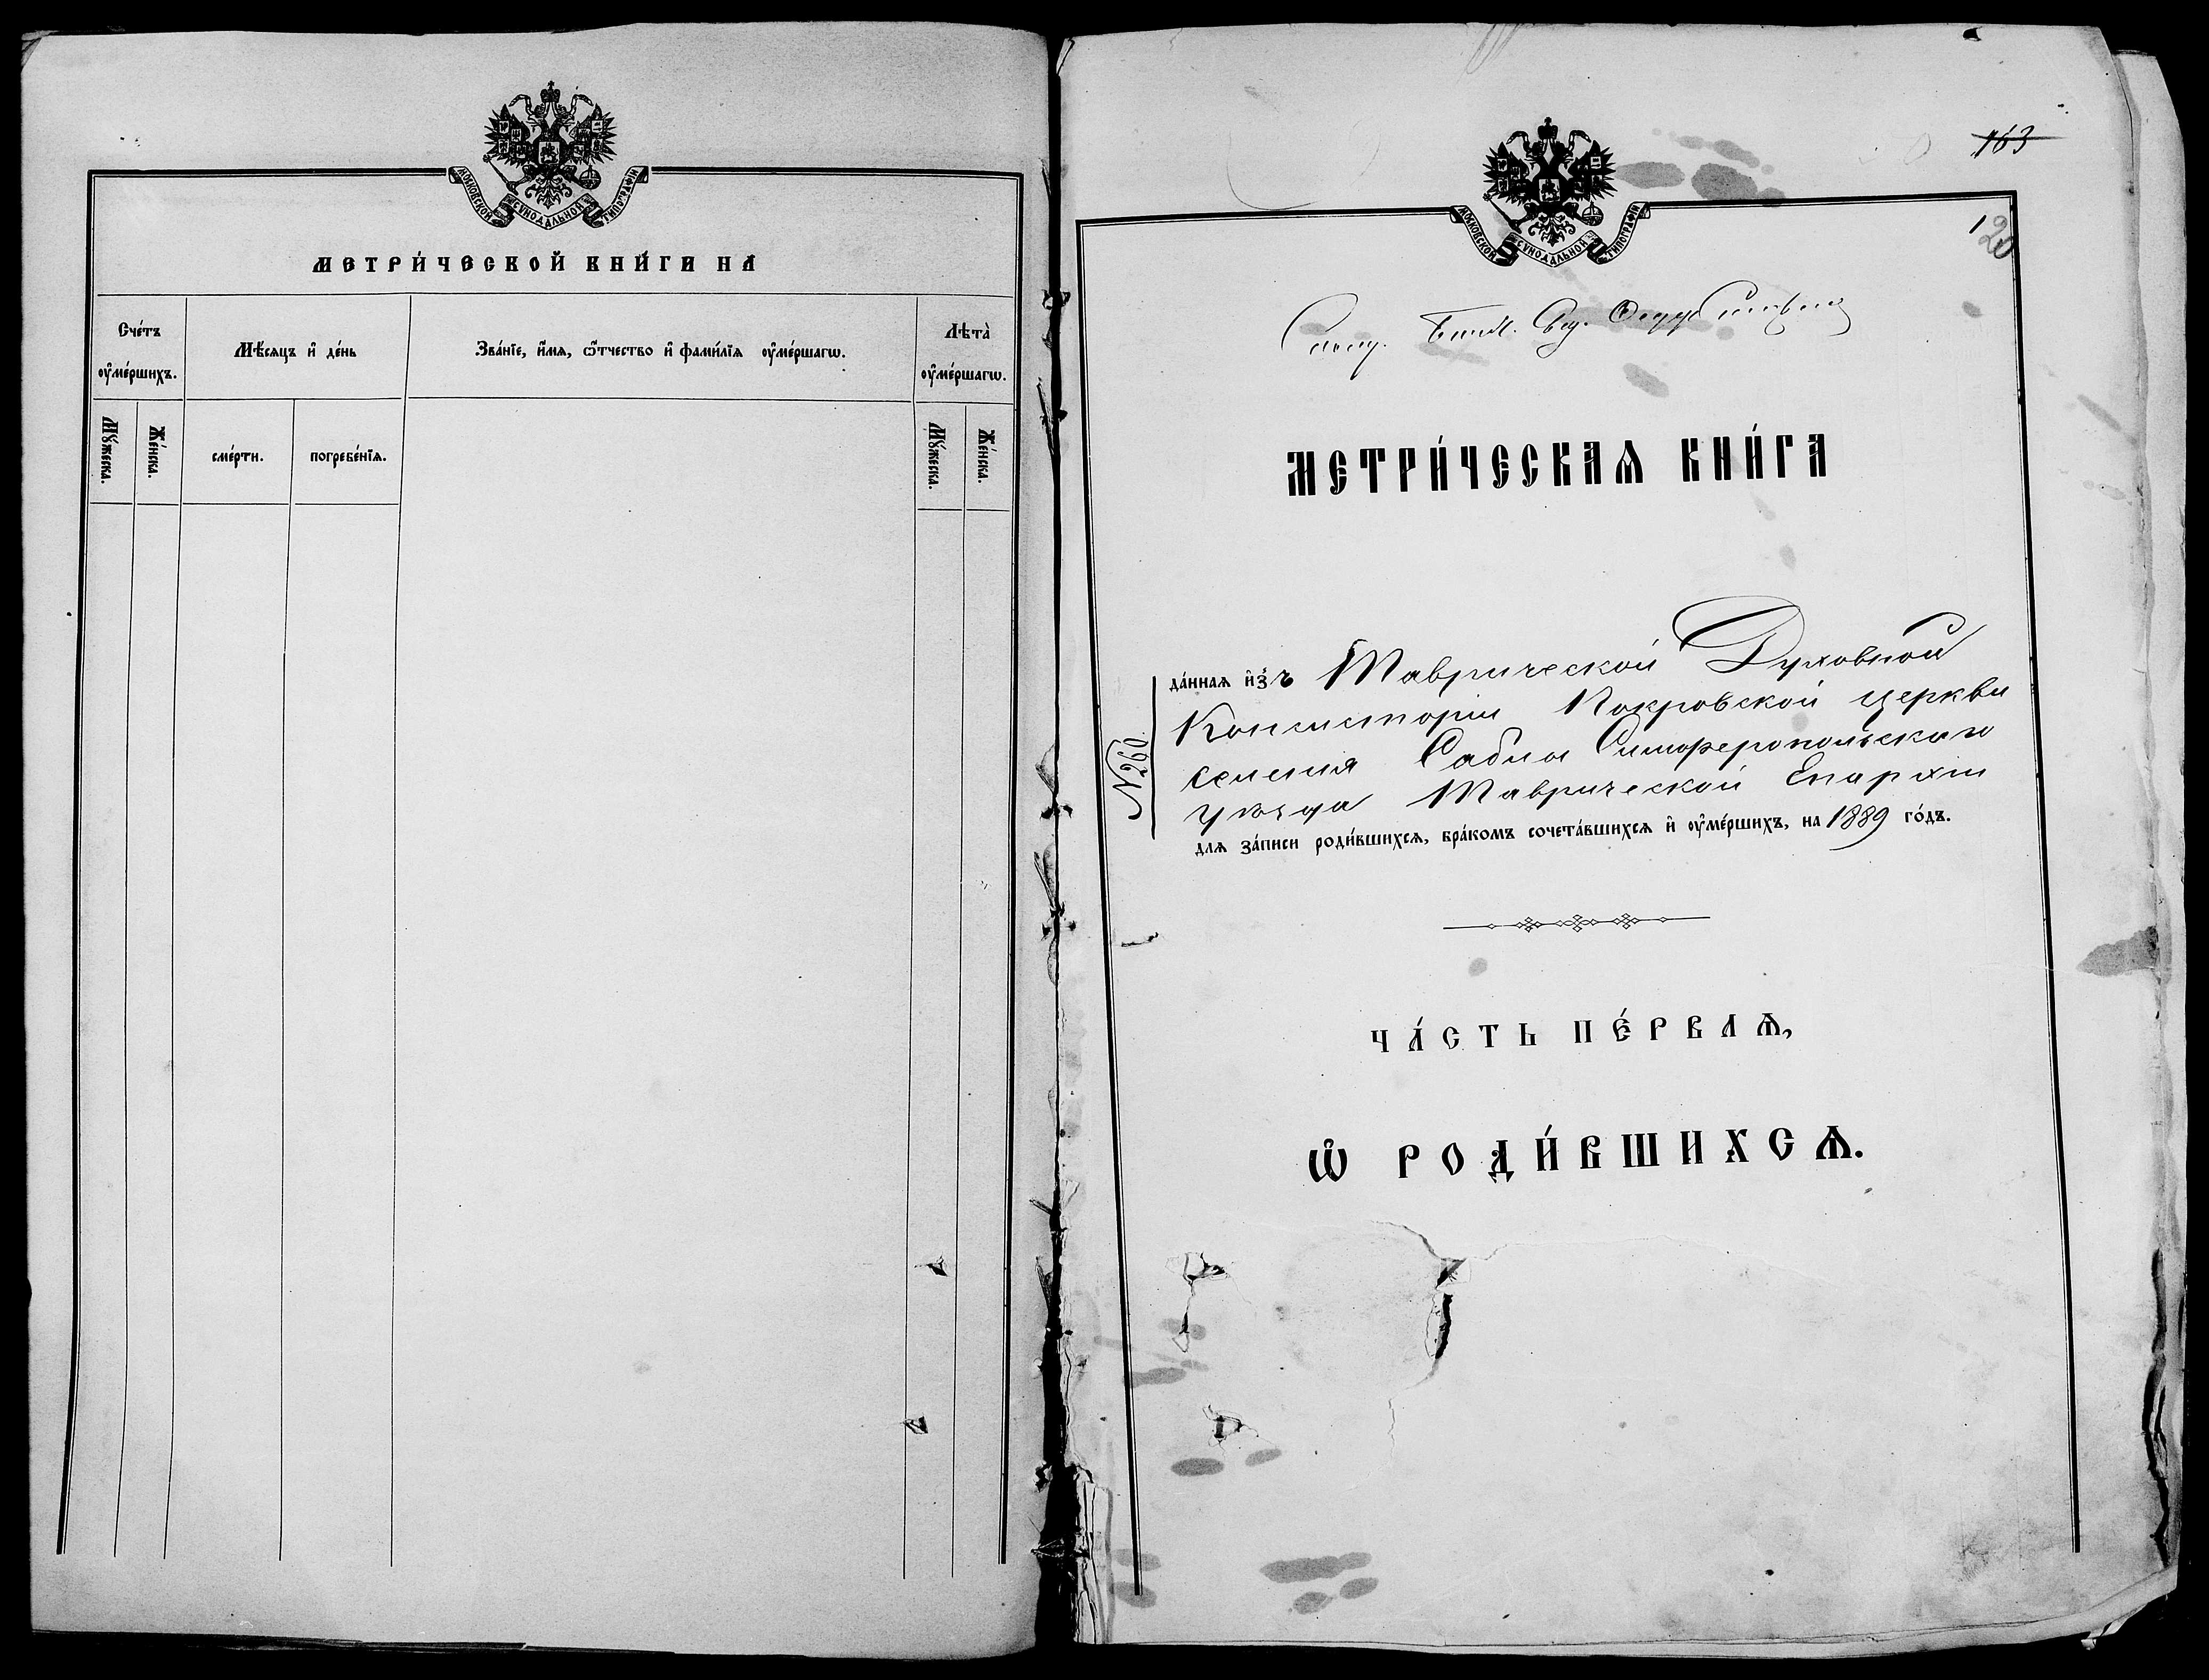 МОСКОВСКОЙ СѴНОДАЛЬНОЙ ТИПОГРАФІИ
МЕТРИ́ЧЕСКОЙ КНИ́ГИ НА
Сче́тъ ᲂу҆ме́ршихъ.
Мѣ́сяцъ и҆ де́нь
Зва́нїе, и҆́мѧ, ѻ҆́тчество и҆ фами́лїѧ ᲂу҆ме́ршагѡ.
Лѣ́та ᲂу҆ме́ршагѡ.
Мꙋ́жеска.
Же́нска.
сме́рти.
погребе́нїѧ.
Мꙋ́жеска.
Же́нска.
163
МОСКОВСКОЙ СѴНОДАЛЬНОЙ ТИПОГРАФІИ
1
20
МЕТРИ́ЧЕСКАѦ КНИ́ГА
да́ннаѧ и҆з̾ъ Таврической Духовной
Консисторіи Покровской церкви
селенія Саблы Симферопольскаго
уѣзда Таврической Епархіи
№ 260.
длѧ за́писи роди́вшихсѧ, бра́комъ сочета́вшихсѧ и҆ ᲂу҆ме́ршихъ, на 1889 го́дъ.
ЧА́СТЬ ПЕ́РВАѦ,
Ѡ҆ РОДИ́ВШИХСѦ.